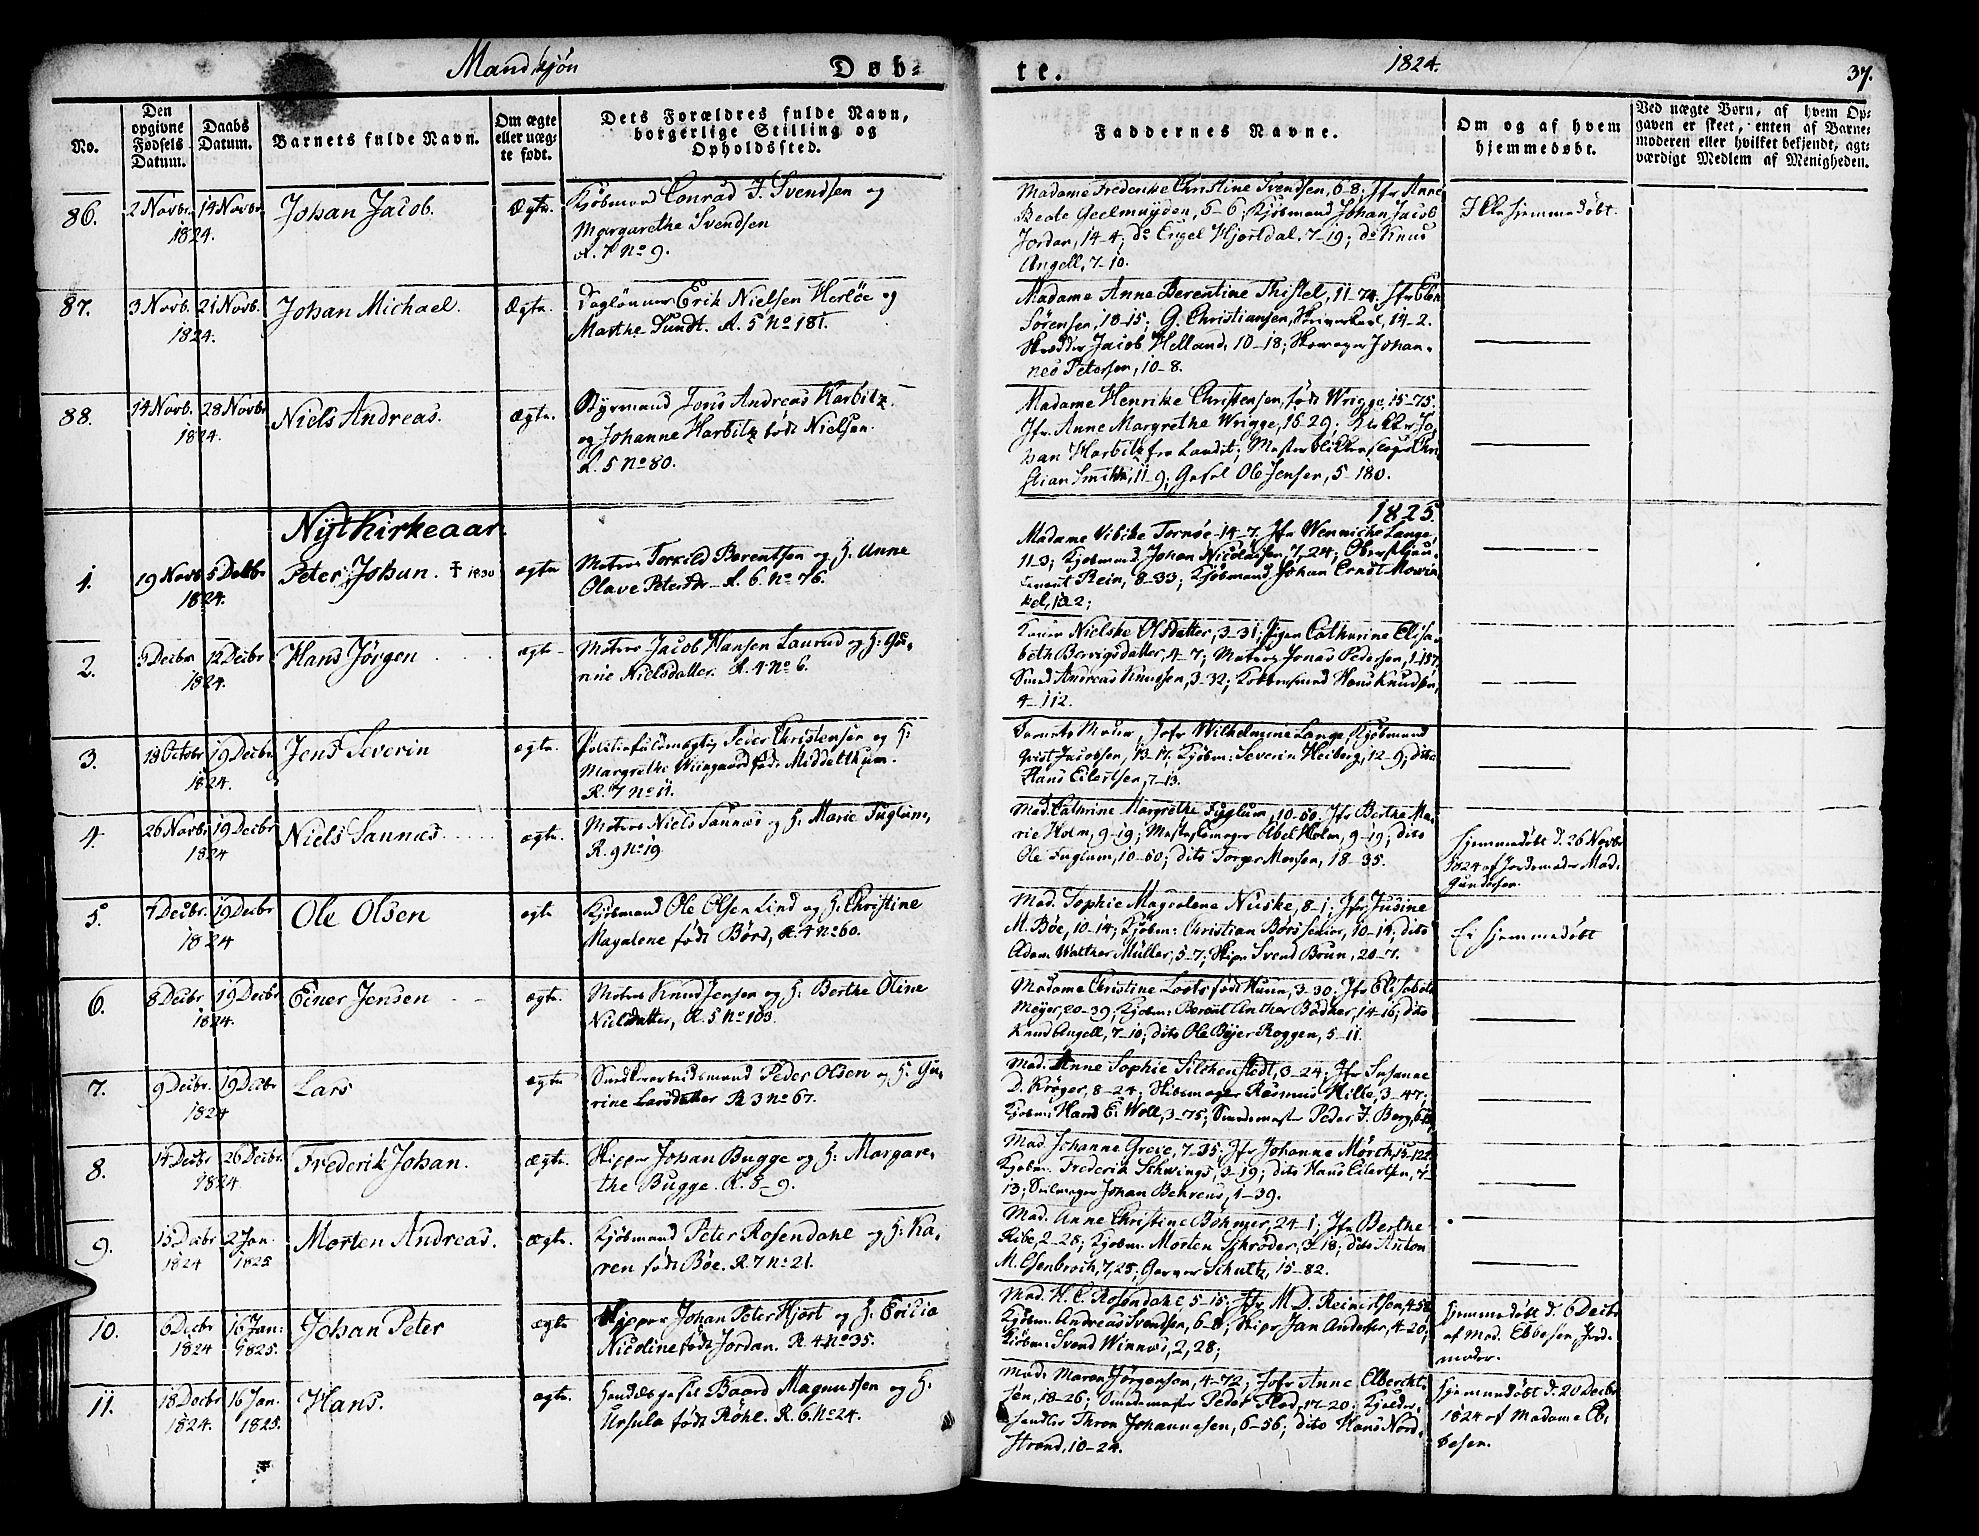 Mandkjøn
Døb-
te.
1824.
37.
No.
Den opgivne Fødsels Datum.
Daabs Datum.
Barnets fulde Navn.
Om ægte eller uægte født.
Dets Forældres fulde Navn, borgerlige Stilling og Opholdssted.
Faddernes Navne.
Om og af hvem hjemmedøbt.
Ved uægte Børn, af hvem Opgaven er skeet, enten af Barnemoderen eller hvilket bekjendt, agtværdigt Medlem af Menigheden.
86.
2 Novbr 14 Novbr
1824.
Johan Jacob.
Ægte.
Kjøbmand Conrad J. Svendsen og
Margarethe Svendsen
R. 7 No 9.
Madame Frederike Christine Svendsen, 6-8; Jfr Anne
Beate Geelmuyden, 5-6; Kjøbmand Johan Jacob
Jordan, 14-4; do Engel Hjortdal, 7-19; do Knud
Angell, 7-10.
Ikke hjemmedøbt.
87.
3 Novb. 21 Novb.
1824.
Johan Michael.
Ægte.
Daglønner Erik Nielsen Herløe og
Marthe Sundt. R. 5 No 181.
Madame Anne Berentine Thistel, 11-74. Jfr Elen
Sørensen, 18-15; G. Christiansen, Skriverkarl, 14-2.
Skrædder Jacob Helland, 10-18; Skomager Johan-
nes Petersen, 10-8.
88.
14 Novb. 28 Novbr
1824.
Niels Andreas.
ægte.
Byrmand Jens Andreas Harbitz
og Johanne Harbitz født Nielsen.
R. 5 No 80.
Madame Henrike Christensen, født Wrigge, 15-75,
Jfr. Anne Margrethe Wrigge, 16-29; Klokker Jo-
han Harbitz fra Landet; Mester Blikkenslager Chri
stian Smith, 11-9; Gesel Ole Jensen, 5-180.
Nyt Kirkeaar
1825.
1.
19 Novb 5 Decbr
1824.
Peter Johan. † 1830
ægte
Matros Torkild Berentsen og H. Anne
Olave Petersdr. R. 6. No 76.
Madame Vibike Tornøe 14-7. Jfr Wenniche Lange,
11-3; Kjøbmand Johan Nicolaisen, 7-24; Oberstlieu-
tenant Rein, 8-33; Kjøbmand Johan Ernst Mowin
kel, 12-2;
2.
5 Decbr 12 Decbr
1824.
Hans Jørgen
ægte
Matros Jacob Hansen Laurud og H: Gu-
nine Nielsdatter. R. 4 No 6.
Konen Nielske Olsdatter, 3-31; Pigen Cathrine Elisa-
beth Bervigsdatter, 4-7; Matros Jonas Pedersen, 1-157,
Smed Andreas Knudsen, 3-32; Kobbersmed Hans Knudsen,
4-112.
3.
18 Octbr 19 Decbr
1824.
Jens Severin
ægte.
Politiefuldmægtig Peder Christensen og H:
Margrethe Wiingaard født Middelthun.
R. 7 No 11.
Barnets Moder, Jfr Wilhelmine Lange, Kjøbmand
Qvist Jacobsen, 13-17; Kjøbm: Severin Heiberg, 12-9; dito
Hans Eilertsen, 7-13.
4.
26 Novbr 19 Decbr
1824
Niels Saunæs
ægte.
Matros Niels Saunæs og H. Marie Fuglum,
R. 9 No 19.
Mad. Cathrine Margrethe Fuglum, 10-60. Jfr Berthe Ma-
rie Holm, 9-19; Mastemager Abel Holm, 9-19; dito
Ole Fuglum, 10-60; dito Torger Monsen, 18-35.
hjemmedøbt d. 26 Novbr
1824 af Jordemoder Mad.
Gundersen.
5.
7 Decbr. 19 Decbr
1824
Ole Olsen
ægte
Kjøbmand Ole Olsen Lind og H. Christine
Magdalene født Børs, R. 4 No 60.
Mad. Sophie Magdalene Nuske, 8-1; Jfr Jusine
M. Bøe, 10-14; Kjøbm: Christian Børs senior, 10-14; dito
Adam Walther Müller, 5-7; Skipr Svend Brun, 20-7.
Ei hjemmedøbt
6.
8 Decbr 19 Decbr
1824.
Einer Jensen
ægte.
Matros Knud Jensen og H. Berthe Oline
Nielsdatter, R. 5 No 103.
Madame Christine Loots født Hunn, 3-30. Jfr Elisabeth
Meyer, 20-39; Kjøbm: Berent Anther Bødker, 14-16; dito
Knud Angell, 7-10; dito Ole Bøjer Roggen, 5-11.
7.
9 Decbr. 19 Decbr
1824
Lars
ægte
Snedkerarbeidsmand Peder Olsen og H: Gu-
rine Larsdatter R. 3 No 67.
Mad. Anne Sophie Silchenstedt, 3-24; Jfr Susanne
D. Krøger, 8-24; Skibsmager Rasmus Hilte, 3-47;
Kjøbm: Hans E. Woll, 3-75; Smedemester Peder J. Berg,
8.
14 Decbr 26 Decbr.
1824.
Frederik Johan.
ægte.
Skipper Johan Bugge og H: Margare-
the Bugge. R. 5-9.
Mad. Johanne Greve, 7-35; Jfr Johanne Mørch, 15-12
Kjøbm. Frederik Schwings, 3-19; dito Hans Eilertsen, 7-
13; Seilmager Johan Behrens, 1-39.
9.
15 Decbr 2 Jan.
1824 1825
Morten Andreas.
ægte.
Kjøbmand Peter Rosendahl og H: Ka-
ren født Bøe. R. 7 No 21.
Mad. Anne Christine Bøhmer, 24-1; Jfr Berthe
Ribe, 2-25; Kjøbm: Morten Schrøder, 3-18; dito Anton
M. Esenbroch, 7, 25; Garver Schultz, 15-82.
10.
6 Decbr 16 Jan:
1824 1825.
Johan Peter
ægte
Skipper Johan Peter Hjort og H. Ericia
Nicoline født Jordan. R. 4 No 35.
Mad. H. C. Rosendahl, 5-15; Jfr M. D. Reinertsen, 4-54
Kjøbm. Andreas Svendsen, 6-8; Skipr Jan Andersen, 4-20;
Kjøbm: Svend Winnæs, 2, 28;
hjemmedøbt d. 6 Decbr
af Mad. Ebbesen, Jord-
moder.
11.
18 Decbr 16 Jan.
1824. 1825.
Hans.
ægte.
Handelsgesel Baard Magnussen og H.
Ursula født Røhl. R. 6. No 24.
Mad. Maren Jørgensen, 4-72; Jfr Anne Elberckt-
sen, 18-26; Smedemester Peder Flod, 17-20; Kjelder-
handler Thron Johannesen, 6-56; dito Hans Nord-
strand, 10-24.
hjemmedøbt d. 20 Decbr
1824 af Madame Eb-
besen.